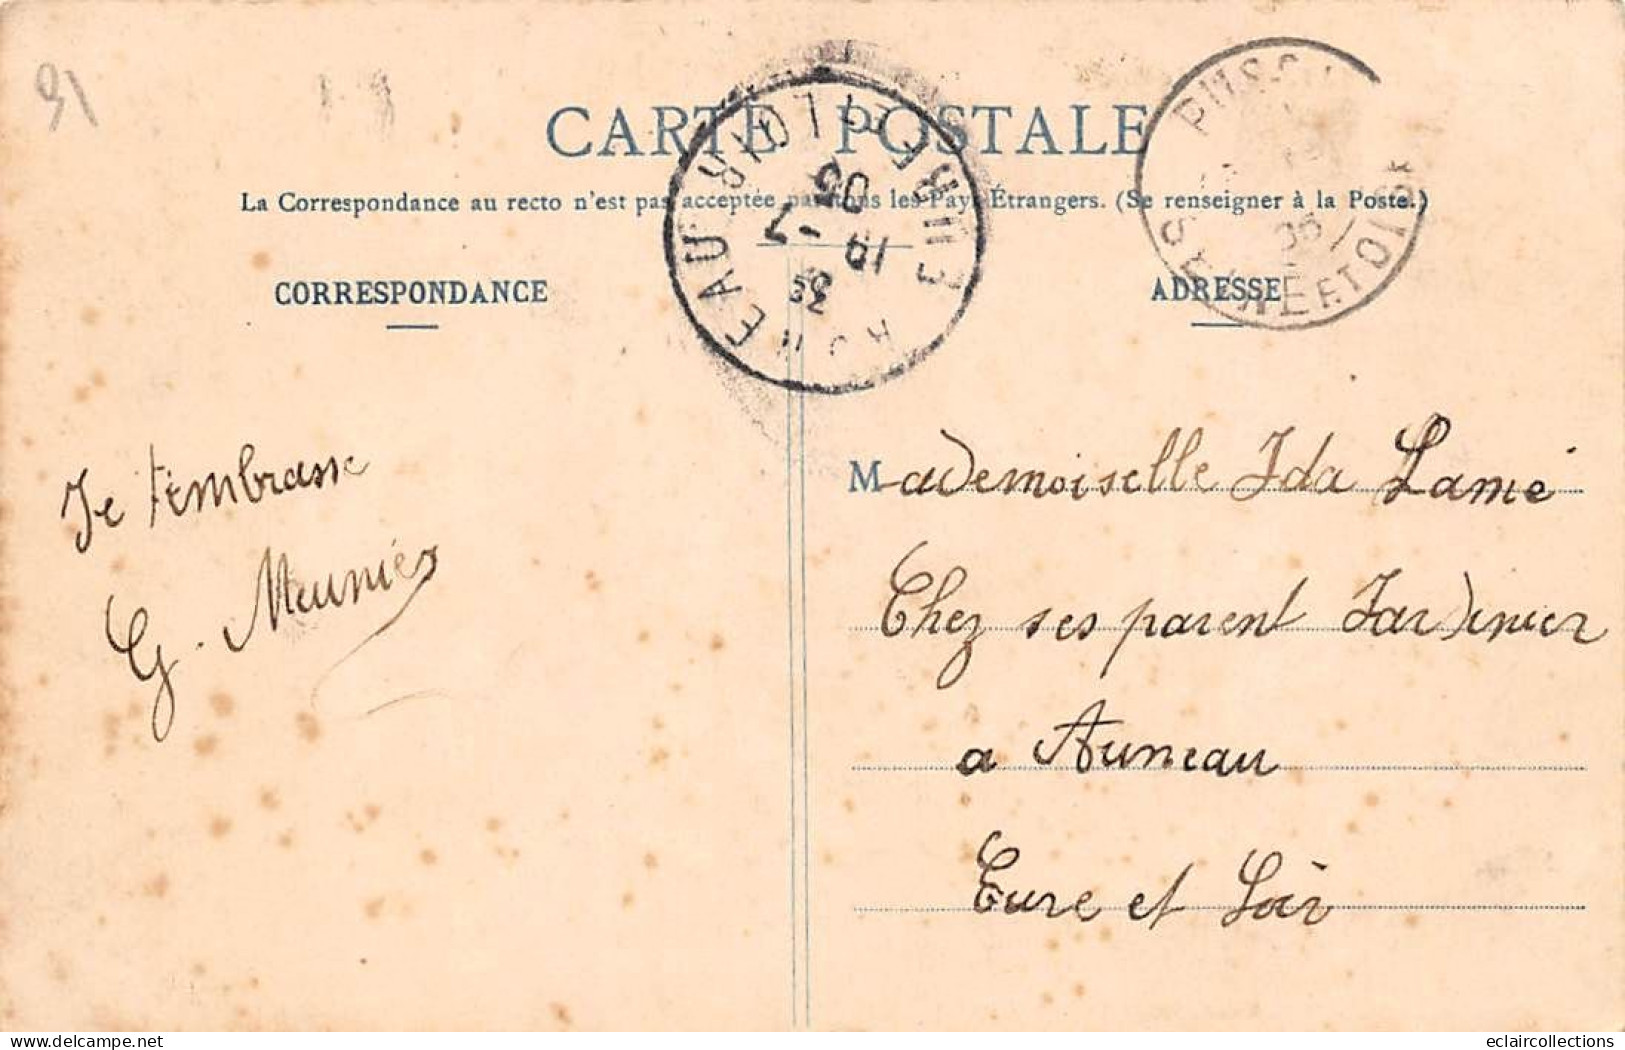 91
CARTE POSTALE
La Correspondance au recto n'est pas acceptée par tous les Pays Étrangers. (Se renseigner à la Poste.)
CORRESPONDANCE
ADRESSE
AUNEAU EURE ET LOIR
3E
19 -7
05
SEINE ET OISE
05
Je t'embrasse
G. Meunier
Mademoiselle Ida Lamé
Chez ses parent Jardinier
a Auneau
Eure et Loir
delcampe.net
eclaircollections